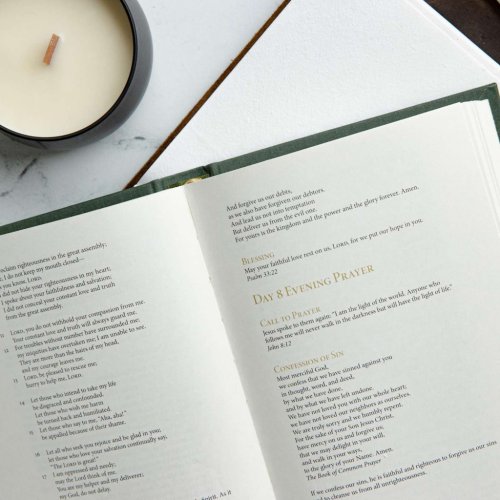 oclaim righteousness in the great assembly;
I do not keep my mouth closed—
you know, LORD.
did not hide your righteousness in my heart;
I spoke about your faithfulness and salvation;
I did not conceal your constant love and truth
from the great assembly.
11 LORD, you do not withhold your compassion from me.
Your constant love and truth will always guard me.
12 For troubles without number have surrounded me;
my iniquities have overtaken me; I am unable to see.
They are more than the hairs of my head,
and my courage leaves me.
13 LORD, be pleased to rescue me;
hurry to help me, LORD.
14 Let those who intend to take my life
be disgraced and confounded.
Let those who wish me harm
be turned back and humiliated.
15 Let those who say to me, "Aha, aha!"
be appalled because of their shame.
16 Let all who seek you rejoice and be glad in you;
let those who love your salvation continually say,
"The LORD is great!"
17 I am oppressed and needy;
may the Lord think of me.
You are my helper and my deliverer;
my God, do not delay.
Spirit. As it
And forgive us our debts,
as we also have forgiven our debtors.
And lead us not into temptation
But deliver us from the evil one.
For yours is the kingdom and the power and the glory forever. Amen.
BLESSING
May your faithful love rest on us, LORD, for we put our hope in you.
Psalm 33:22
DAY 8 EVENING PRAYER
CALL TO PRAYER
Jesus spoke to them again: "I am the light of the world. Anyone who
follows me will never walk in the darkness but will have the light of life."
John 8:12
CONFESSION OF SIN
Most merciful God,
we confess that we have sinned against you
in thought, word, and deed,
by what we have done,
and by what we have left undone.
We have not loved you with our whole heart;
we have not loved our neighbors as ourselves.
We are truly sorry and we humbly repent.
For the sake of your Son Jesus Christ,
have mercy on us and forgive us;
that we may delight in your will,
and walk in your ways,
to the glory of your Name. Amen.
The Book of Common Prayer
If we confess our sins, he is faithful and righteous to forgive us our sins
to cleanse us from all unrighteousness.